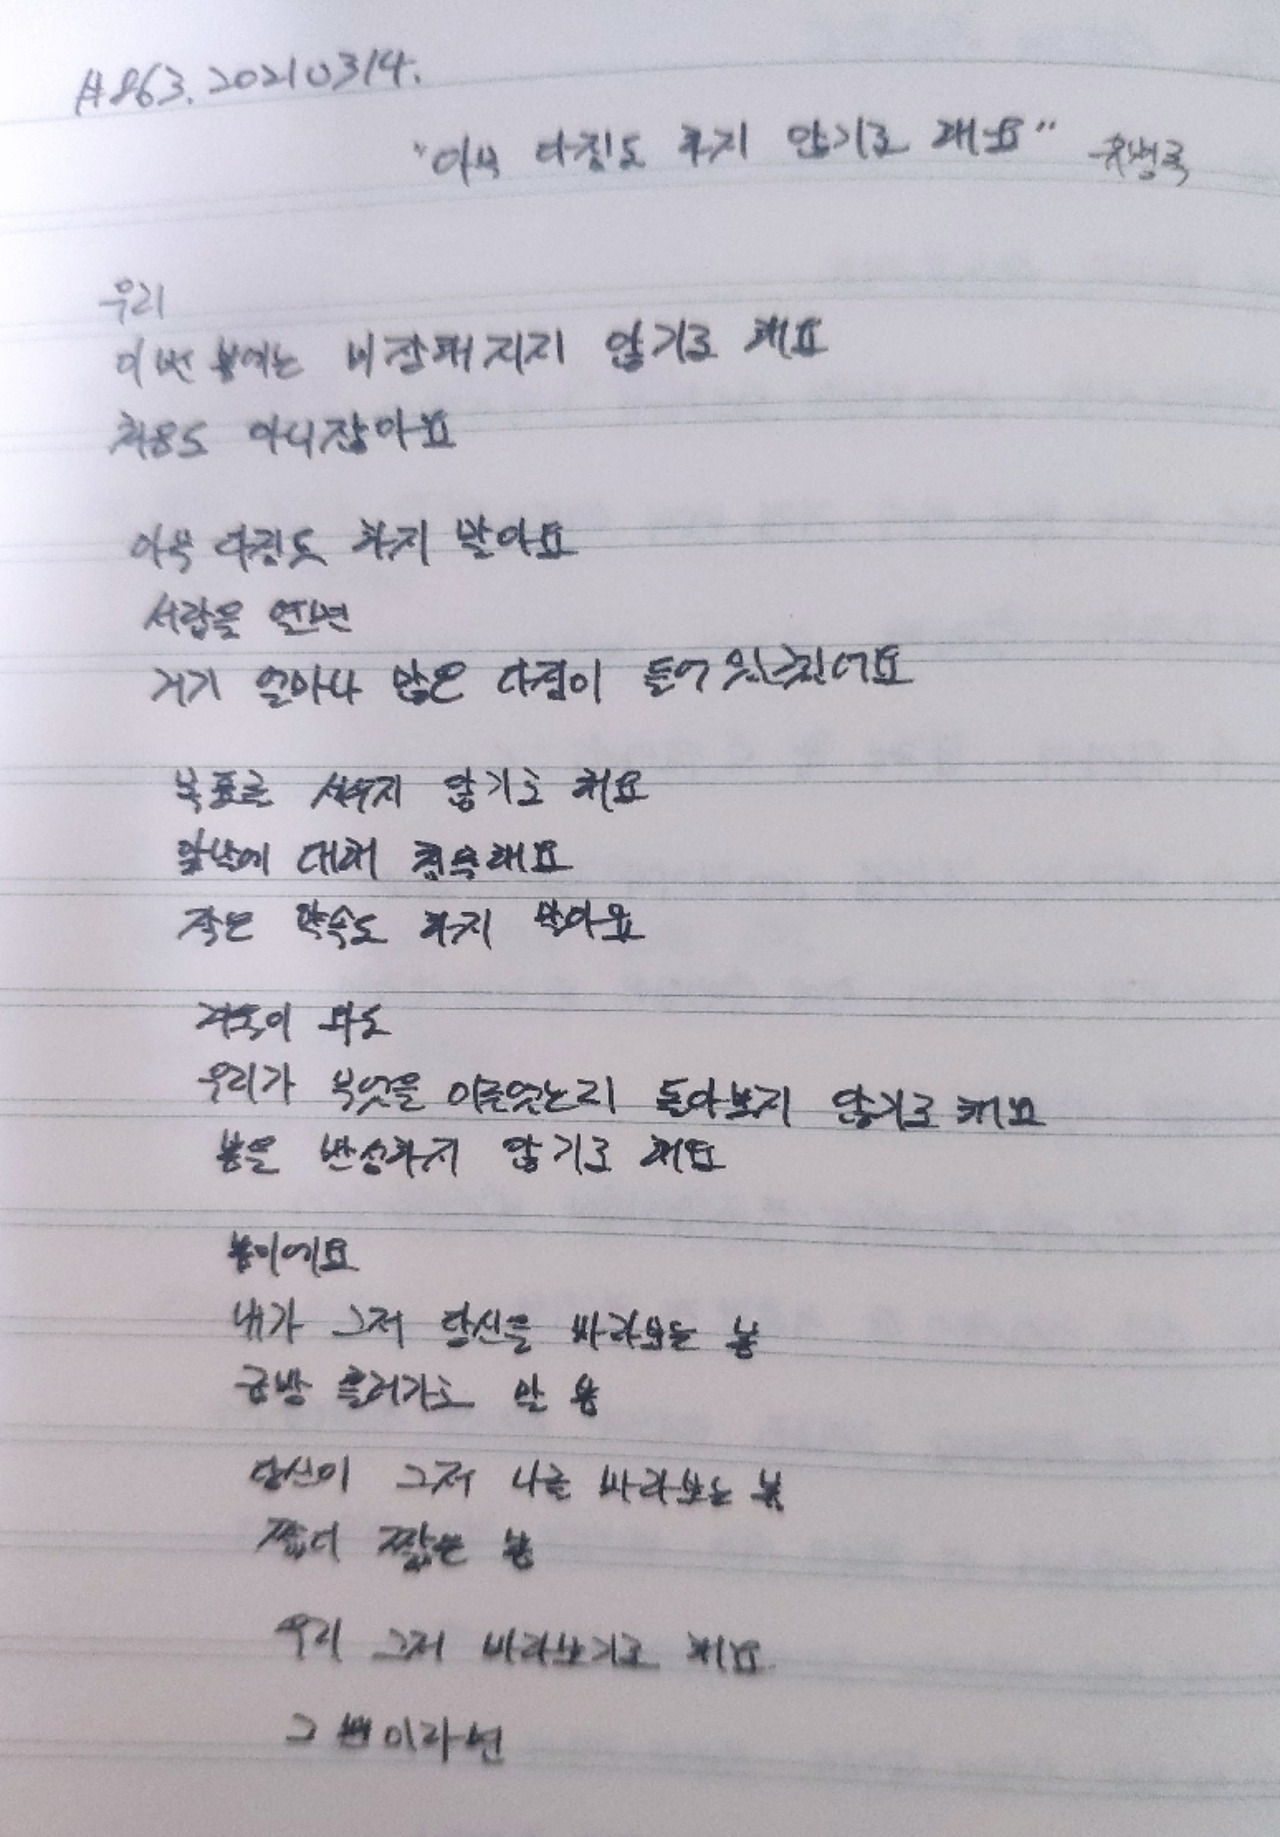 #863. 20210314.
"아무 다짐도 하지 않기로 해요" 유병록
우리
이번 봄에는 비장해지지 않기로 해요
처음도 아니잖아요
아무 다짐도 하지 말아요
서랍을 열면
거기 얼마나 많은 다짐이 들어 있겠어요
목표를 세우지 않기로 해요
앞날에 대해 침묵해요
작은 약속도 하지 말아요
겨울이 와도
우리가 무엇을 이루었는지 돌아보지 않기로 해요
봄을 반성하지 않기로 해요
봄이에요
내가 그저 당신을 바라보는 봄
금방 흘러가고 말 봄
당신이 그저 나를 바라보는 봄
짧디 짧은 봄
우리 그저 바라보기로 해요
그뿐이라면